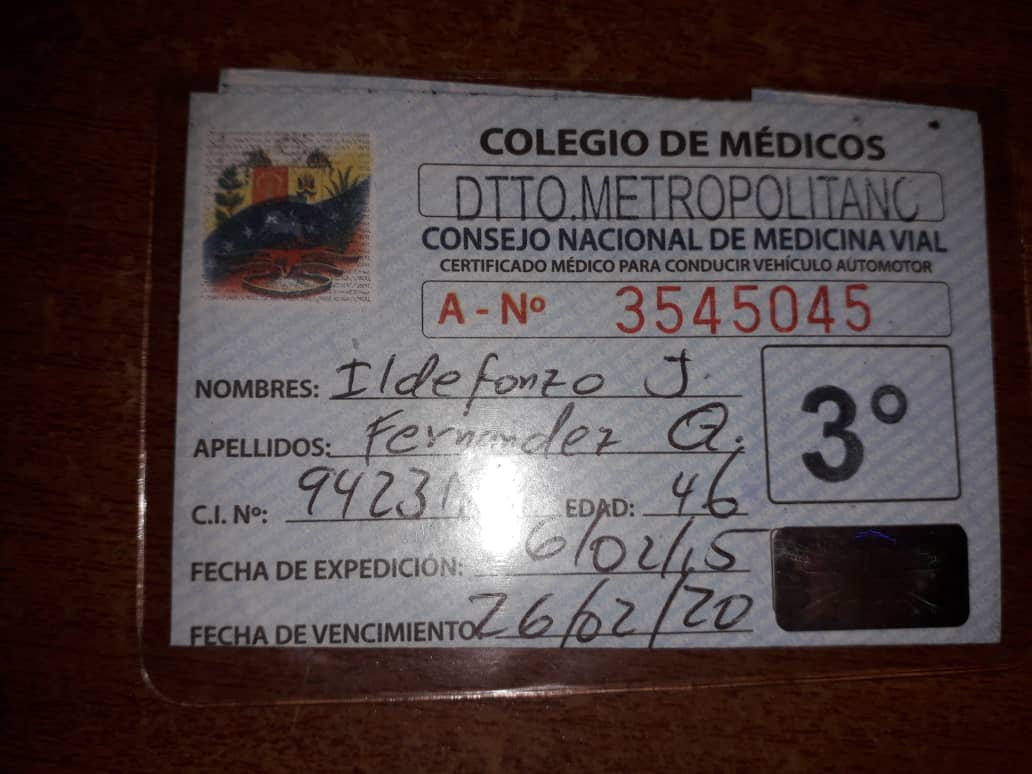 COLEGIO DE MÉDICOS
DTTO.METROPOLITANO
CONSEJO NACIONAL DE MEDICINA VIAL
CERTIFICADO MÉDICO PARA CONDUCIR VEHÍCULO AUTOMOTOR
A - Nº 3545045
NOMBRES: Ildefonzo J.
3º
APELLIDOS: Fernandez Q.
C.I. Nº: EDAD: 46
FECHA DE EXPEDICIÓN: 6/02/15
FECHA DE VENCIMIENTO 26/02/20